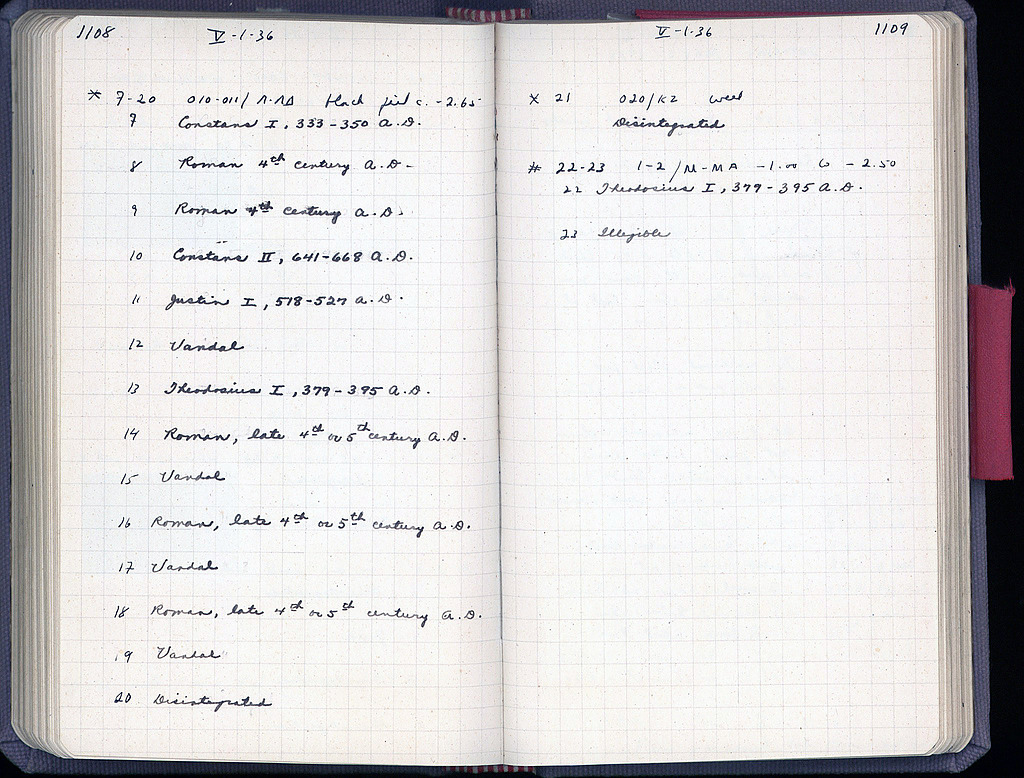 1108
V-1-36
* 7-20 010-011/Λ-ΛΔ black fill c. -2.65
7 Constans I, 333-350 A.D.
8 Roman 4th century A.D.
9 Roman 4th century A.D.
10 Constans II, 641-668 A.D.
11 Justin I, 518-527 A.D.
12 Vandal
13 Theodosius I, 379-395 A.D.
14 Roman, late 4th or 5th century A.D.
15 Vandal
16 Roman, late 4th or 5th century A.D.
17 Vandal
18 Roman, late 4th or 5th century A.D.
19 Vandal
20 Disintegrated
V-1-36
1109
x 21 020/KZ well
Disintegrated
# 22-23 1-2/M-MA -1.00 to -2.50
22 Theodosius I, 379-395 A.D.
23 Illegible